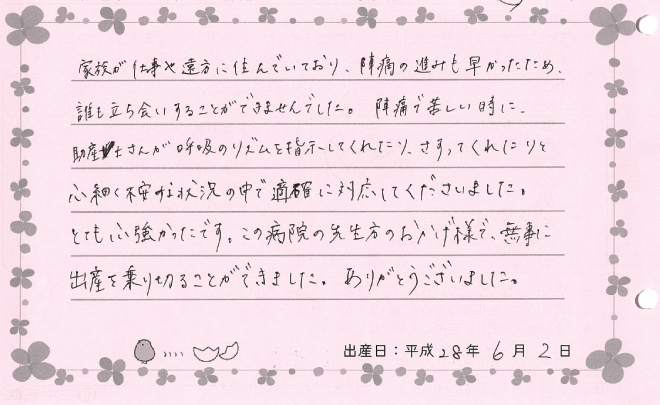 家族が仕事や遠方に住んでいており、陣痛の進みも早かったため、
誰も立ち会いすることができませんでした。 陣痛で苦しい時に、
助産士さんが呼吸のリズムを指示してくれたり、さすってくれたりと
心細く不安な状況の中で適確に対応してくださいました。
とても心強かったです。この病院の先生方のおかげ様で、無事に
出産を乗り切ることができました。 ありがとうございました。
出産日：平成28年 6月 2日